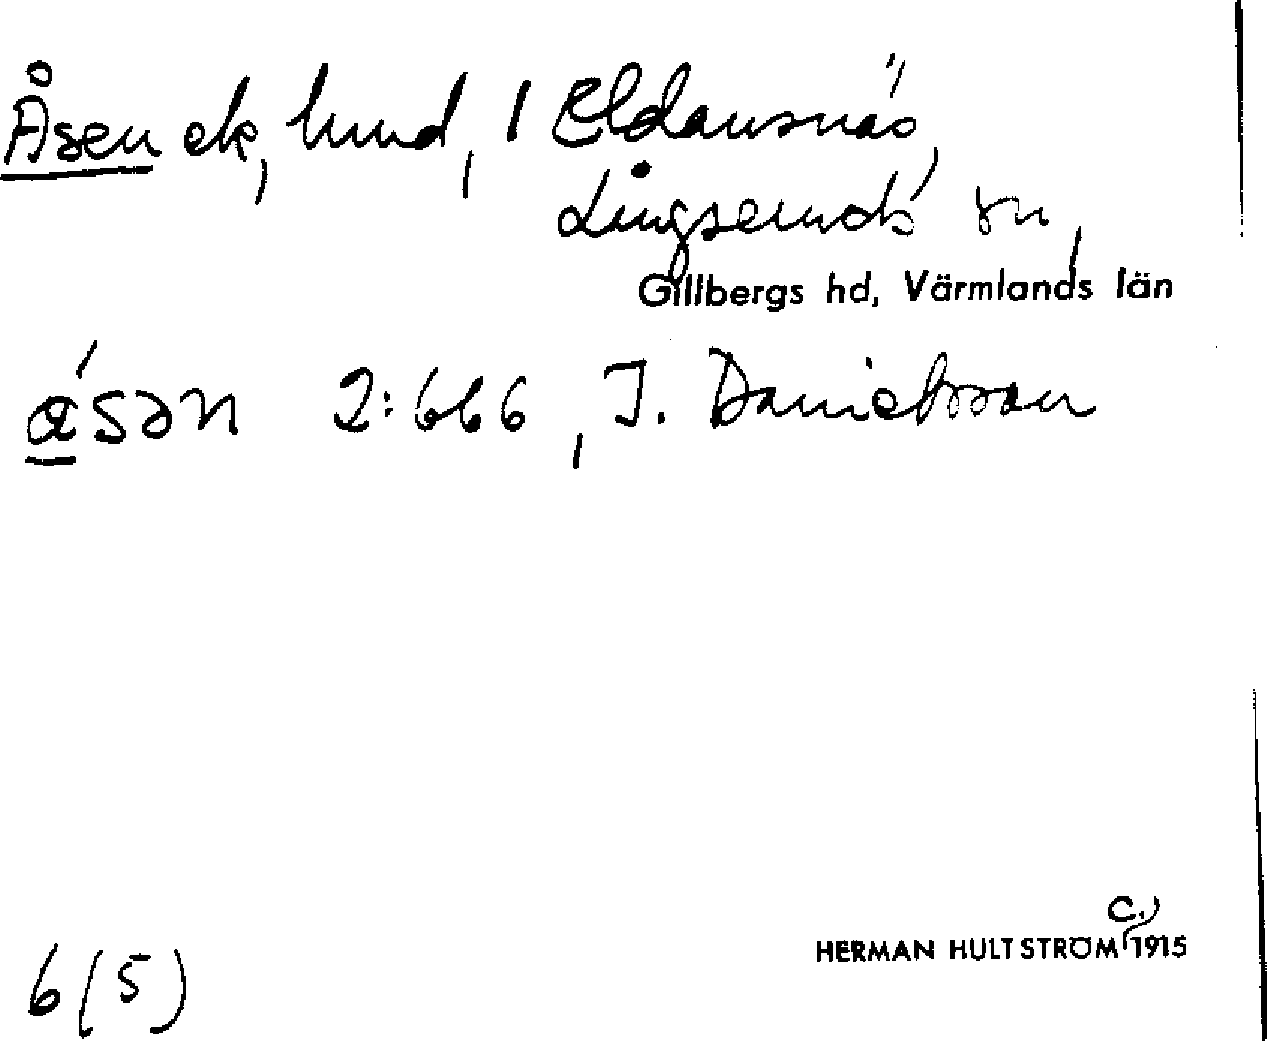 Åsen ek, hmd, 1 Eldansnäs,
Långseruds sn,
Gillbergs hd, Värmlands län
ǻsən 2:666, J. Danielsson
c.)
HERMAN HULTSTRÖM 1915
6(5)